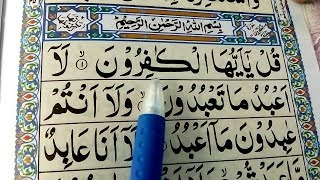 بِسْمِ اللّٰهِ الرَّحْمٰنِ الرَّحِيْمِ
قُلْ يٰٓاَيُّهَا الْكٰفِرُوْنَ ۙ۝۱ لَاۤ
اَعْبُدُ مَا تَعْبُدُوْنَ ۙ۝ وَلَاۤ اَنْتُمْ
عٰبِدُوْنَ مَاۤ اَعْبُدُ ۚ۝ وَلَاۤ اَنَا عَابِدٌ